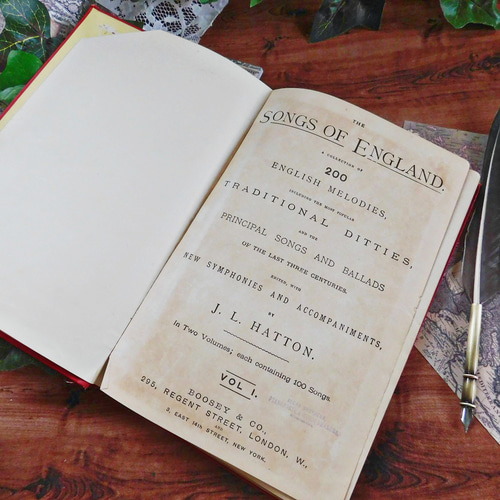 THE
SONGS OF ENGLAND.
A COLLECTION OF
200
ENGLISH MELODIES,
INCLUDING THE MOST POPULAR
TRADITIONAL DITTIES,
AND THE
PRINCIPAL SONGS AND BALLADS
OF THE LAST THREE CENTURIES.
EDITED, WITH
NEW SYMPHONIES AND ACCOMPANIMENTS,
BY
J. L. HATTON.
In Two Volumes; each containing 100 Songs.
VOL I.
BOOSEY & CO.,
295, REGENT STREET, LONDON, W.,
AND
3, EAST 14TH STREET, NEW YORK.